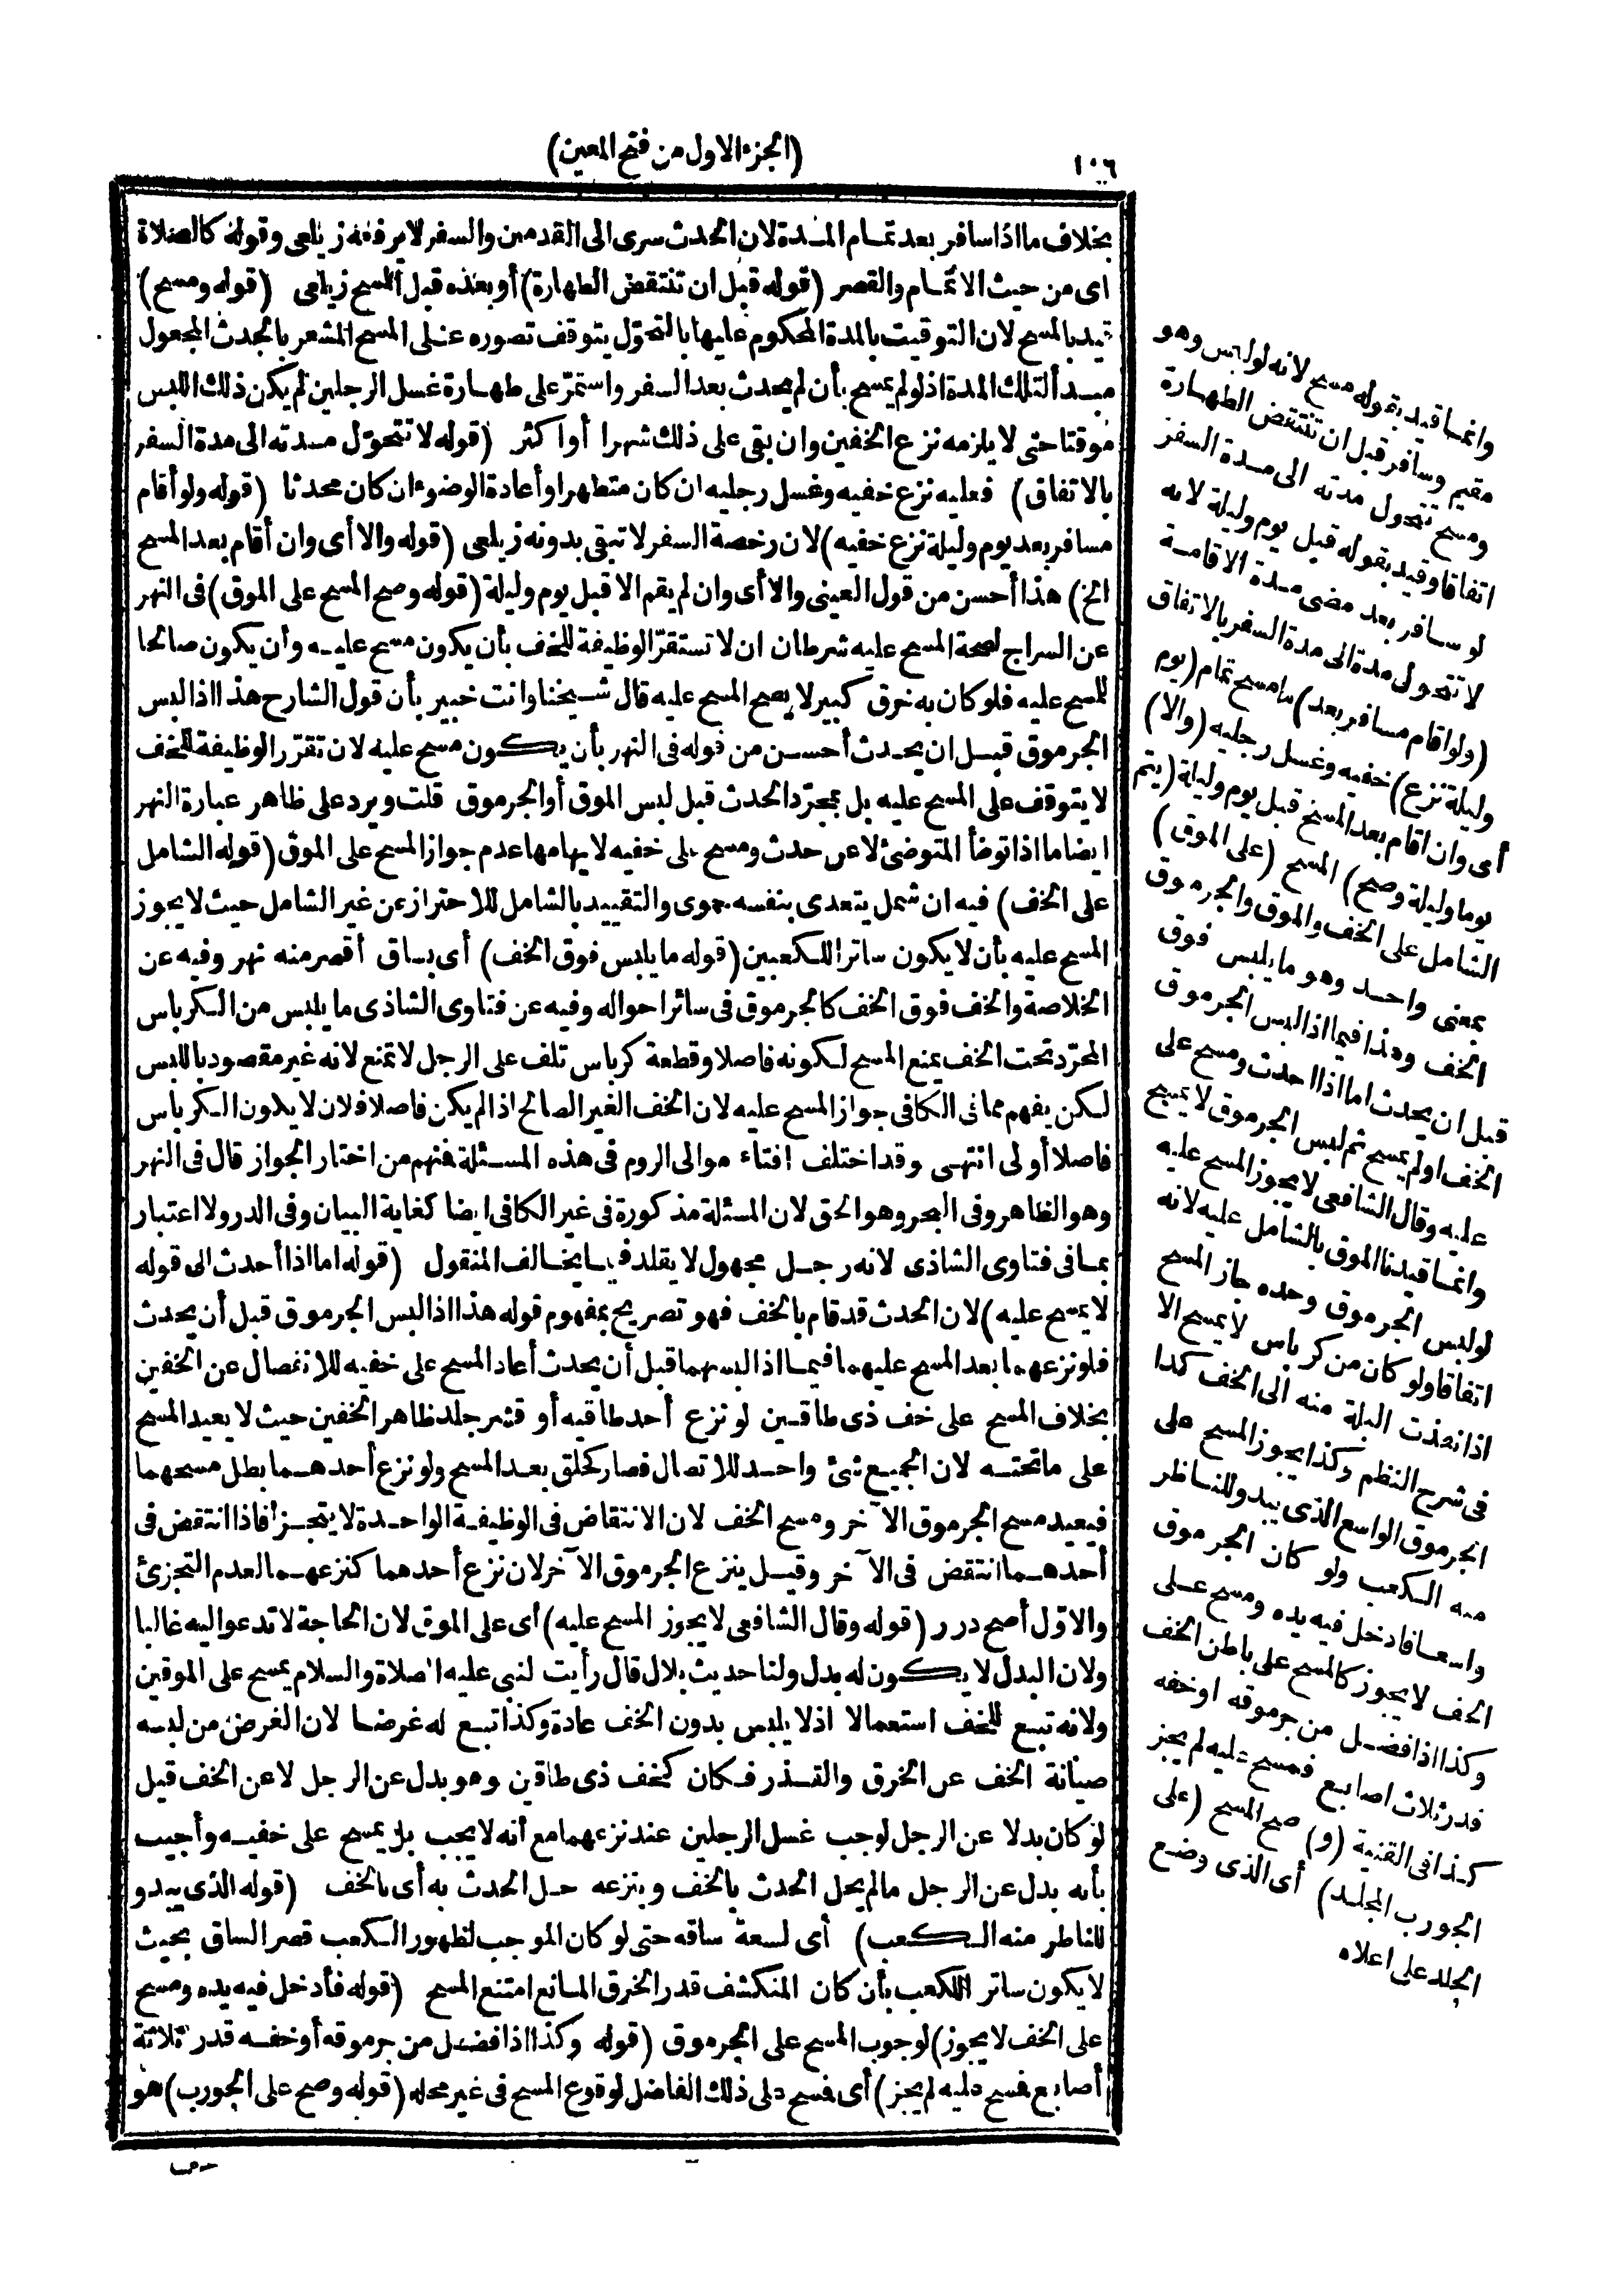 ١٠٦
(الجزء الاول من فتح المعين)
بخلاف ما اذا سافر بعد تمام المدة لان الحدث سرى الى القدمين والسفر لا يرفعه زيلعى وقوله كالصلاة
اى من حيث الاتمام والقصر (قوله قبل ان تنتقض الطهارة) أو بعده قبل المسح زيلعى (قوله ومسح)
قيد بالمسح لان التوقيت بالمدة المحكوم عليها بالتحوّل يتوقف تصوره على المسح المشعر بالحدث المجعول
مبدأ لتلك المدة اذ لو لم يمسح بأن لم يحدث بعد السفر واستمرّ على طهارة غسل الرجلين لم يكن ذلك اللبس
موقتا حتى لا يلزمه نزع الخفين وان بقى على ذلك شهرا أو أكثر (قوله لا تتحوّل مدته الى مدة السفر
بالاتفاق) فعليه نزع خفيه وغسل رجليه ان كان متطهرا وأعادة الوضوء ان كان محدثا (قوله ولو أقام
مسافر بعد يوم وليلة نزع خفيه) لان رخصة السفر لا تبقى بدونه زيلعى (قوله والا أى وان أقام بعد المسح
الخ) هذا أحسن من قول العينى والا أى وان لم يقم الا قبل يوم وليلة (قوله وصح المسح على الموق) فى النهر
عن السراج لصحة المسح عليه شرطان ان لا تستقرّ الوظيفة للخف بأن يكون مسح عليه وأن يكون صالحا
للمسح عليه فلو كان به خرق كبير لا يصح المسح عليه قال شيخنا وانت خبير بأن قول الشارح هذا اذا لبس
الجرموق قبل ان يحدث أحسن من قوله فى النهر بأن يكون مسح عليه لان تقرّر الوظيفة للخف
لا يتوقف على المسح عليه بل بمجرّد الحدث قبل لبس الموق أو الجرموق قلت ويرد على ظاهر عبارة النهر
ايضا ما اذا توضأ المتوضئ لا عن حدث ومسح على خفيه لايهامها عدم جواز المسح على الموق (قوله الشامل
على الخف) فيه ان شمل يتعدى بنفسه حموى والتقييد بالشامل للاحتراز عن غير الشامل حيث لا يجوز
المسح عليه بأن لا يكون ساترا للكعبين (قوله ما يلبس فوق الخف) أى بساق أقصر منه نهر وفيه عن
الخلاصة والخف فوق الخف كالجرموق فى سائر احواله وفيه عن فتاوى الشاذى ما يلبس من الكرباس
المجرّد تحت الخف يمنع المسح لكونه فاصلا وقطعة كرباس تلف على الرجل لا تمنع لانه غير مقصود باللبس
لكن يفهم مما فى الكافى جواز المسح عليه لان الخف الغير الصالح اذا لم يكن فاصلا فلان لا يكون الكرباس
فاصلا أولى انتهى وقد اختلف افتاء موالى الروم فى هذه المسئلة فمنهم من اختار الجواز قال فى النهر
وهو الظاهر وفى البحر وهو الحق لان المسئلة مذكورة فى غير الكافى ايضا كغاية البيان وفى الدر ولا اعتبار
بما فى فتاوى الشاذى لانه رجل مجهول لا يقلد فيما يخالف المنقول (قوله اما اذا أحدث الى قوله
لا يمسح عليه) لان الحدث قد قام بالخف فهو تصريح بمفهوم قوله هذا اذا لبس الجرموق قبل أن يحدث
فلو نزعهما بعد المسح عليهما فيما اذا لبسهما قبل أن يحدث أعاد المسح على خفيه للانفصال عن الخفين
بخلاف المسح على خف ذى طاقين لو نزع أحد طاقيه أو قشر جلد ظاهر الخفين حيث لا يعيد المسح
على ما تحته لان الجميع شئ واحد للاتصال فصار كحلق بعد المسح ولو نزع أحدهما بطل مسحهما
فيعيد مسح الجرموق الآخر ومسح الخف لان الانتقاض فى الوظيفة الواحدة لا يتجزأ فاذا انتقض فى
أحدهما انتقض فى الآخر وقيل ينزع الجرموق الآخر لان نزع أحدهما كنزعهما لعدم التجزئ
والاوّل أصح درر (قوله وقال الشافعى لا يجوز المسح عليه) أى على الموق لان الحاجة لا تدعو اليه غالبا
ولان البدل لا يكون له بدل ولنا حديث بلال قال رأيت لنبى عليه الصلاة والسلام يمسح على الموقين
ولانه تبع للخف استعمالا اذ لا يلبس بدون الخف عادة وكذا تبع له غرضا لان الغرض من لبسه
صيانة الخف عن الخرق والقذر فكان كخف ذى طاقين وهو بدل عن الرجل لا عن الخف قيل
لو كان بدلا عن الرجل لوجب غسل الرجلين عند نزعهما مع أنه لا يجب بل يمسح على خفيه وأجيب
بأنه بدل عن الرجل ما لم يحل الحدث بالخف وبنزعه حل الحدث به أى بالخف (قوله الذى يبدو
للناظر منه الكعب) أى لسعة ساقه حتى لو كان الموجب لظهور الكعب قصر الساق بحيث
لا يكون ساتر اللكعب بأن كان المنكشف قدر الخرق المانع امتنع المسح (قوله فأدخل فيه يده ومسح
على الخف لا يجوز) لوجوب المسح على الجرموق (قوله وكذا اذا فضل من جرموقه أو خفه قدر ثلاثة
أصابع فمسح عليه لم يجز) أى فمسح على ذلك الفاضل لوقوع المسح فى غير محله (قوله وصح على الجورب) هو
وانما قيد بقوله مسح لانه لو لبس وهو
مقيم وسافر قبل ان تنتقض الطهارة
ومسح تتحول مدته الى مدة السفر
اتفاقا وقيد بقوله قبل يوم وليلة لانه
لو سافر بعد مضى مدة الاقامة
لا تتحول مدة الى مدة السفر بالاتفاق
(ولو اقام مسافر بعد) ما مسح تمام (يوم
وليلة نزع) خفيه وغسل رجليه (والا)
أى وان اقام بعد المسح قبل يوم وليلة (يتم
يوما وليلة وصح) المسح (على الموق)
الشامل على الخف والموق والجرموق
بمعنى واحد وهو ما يلبس فوق
الخف وهذا فيما اذا لبس الجرموق
قبل ان يحدث اما اذا احدث ومسح على
الخف او لم يمسح ثم لبس الجرموق لا يمسح
عليه وقال الشافعى لا يجوز المسح عليه
وانما قيدنا الموق بالشامل عليه لانه
لو لبس الجرموق وحده جاز المسح
اتفاقا ولو كان من كرباس لا يمسح الا
اذا نفذت البلة منه الى الخف كذا
فى شرح النظم وكذا يجوز المسح على
الجرموق الواسع الذى يبدو للناظر
منه الكعب ولو كان الجرموق
واسعا فادخل فيه يده ومسح على
الخف لا يجوز كالمسح على باطن الخف
وكذا اذا فضل من جرموقه او خفه
قدر ثلاث اصابع فمسح عليه لم يجز
كذا فى القنية (و) صح المسح (على
الجورب المجلد) أى الذى وضع
الجلد على اعلاه